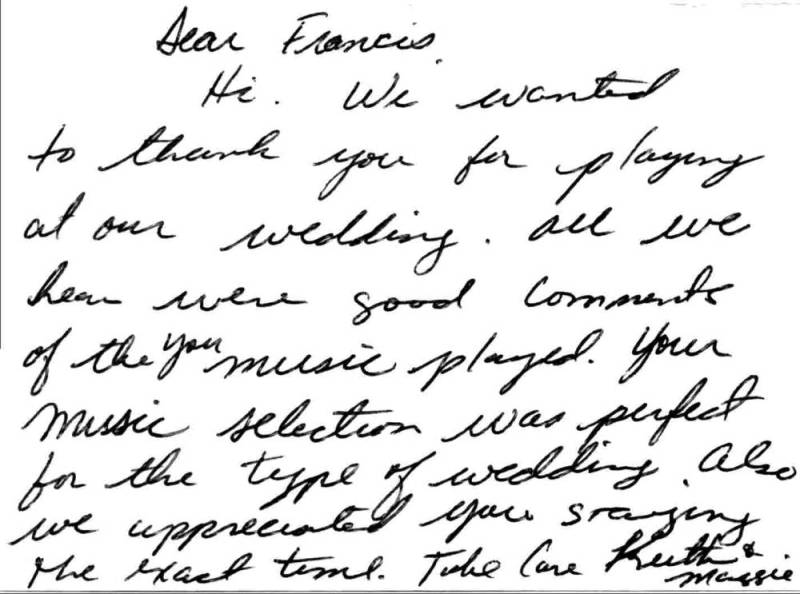 Dear Francis,
Hi. We wanted
to thank you for playing
at our wedding. All we
hear were good comments
of the you music played. Your
music selection was perfect
for the type of wedding. Also
we appreciated your staying
the exact time. Take Care Keith &
Maggie